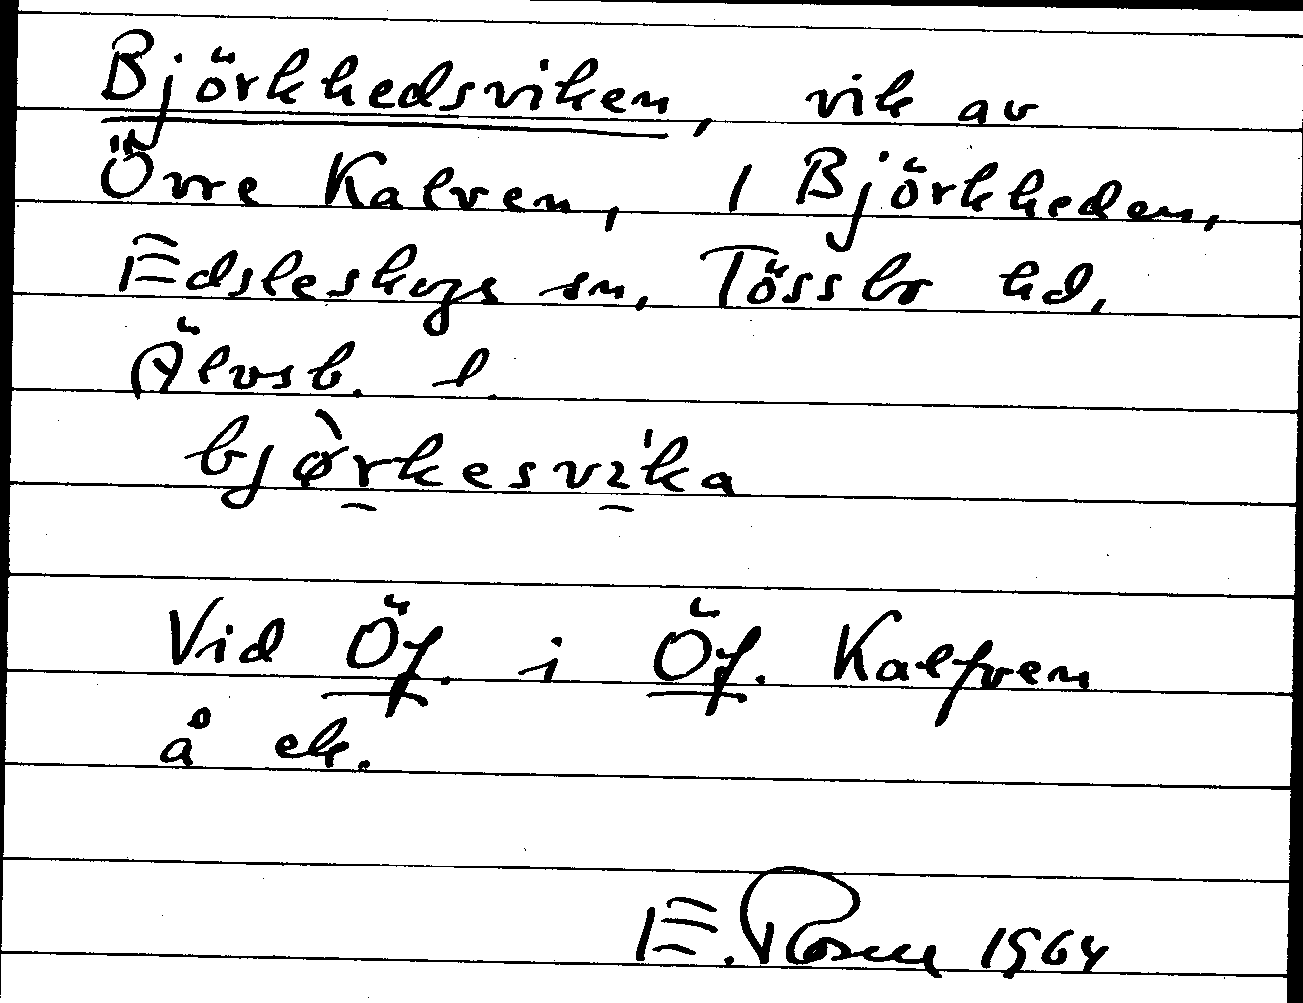 Björkhedsviken, vik av
Övre Kalven, i Björkheden,
Edsleskogs sn, Tössbo hd,
Älvsb. l.
bjørkesvika
Vid Öf. i Öf. Kalfven
å ek.
E. Rosell 1964